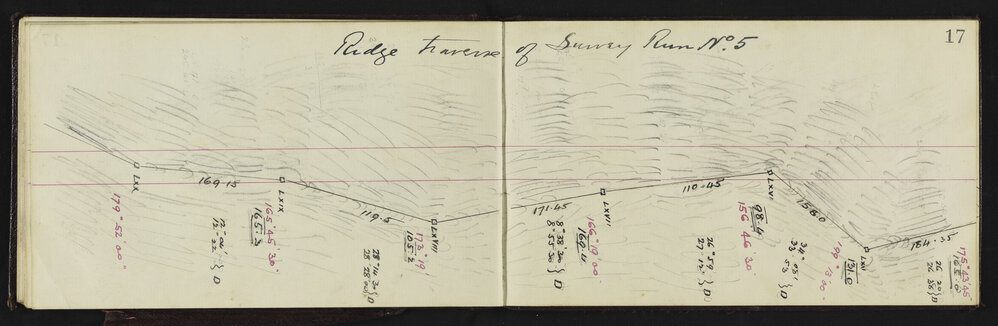 17
Ridge Traverse of Survey Run No. 5
LXX
179° 52' 00"
169.15
12° 22' } D
LXIX
165° 45' 30"
165.3
119.5
28° 14' 30
28 28 00 } D
LXVIII
173° 19'
105.2
171.45
8° 38' 30
8. 53' 30 } D
LXVII
166° 19' 00"
169.4
110.45
26° 59'
27. 12' } D
LXVI
98.4
156° 46' 30"
158.0
34° 03'
33. 53 } D
199° 13' 00"
131.0
164.35
26 20
26 36 } D
175° 43' 45
165.0